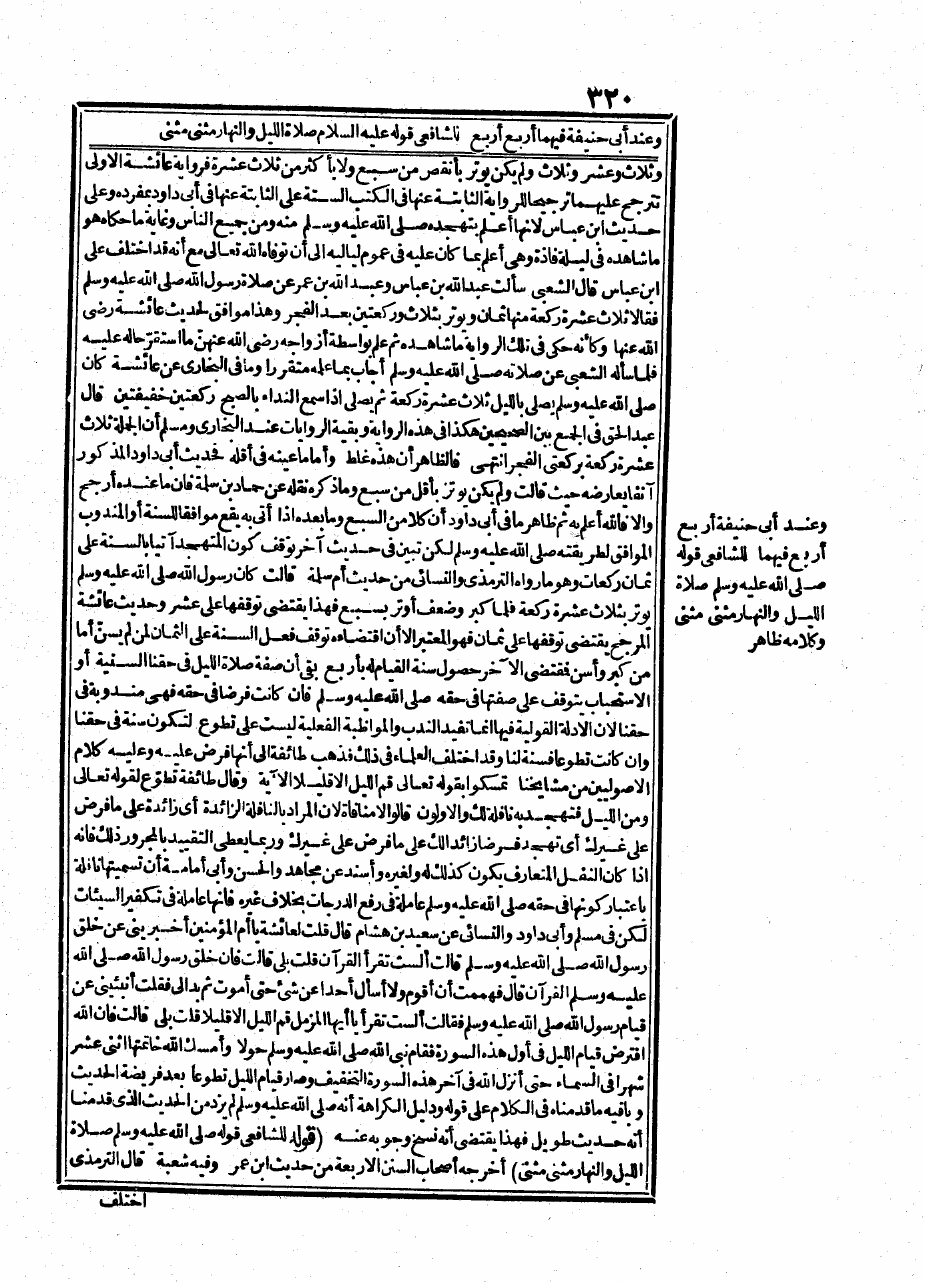 ٣٢٠
وعند أبى حنيفة فيهما أربع أربع للشافعى قوله عليه السلام صلاة الليل والنهار مثنى مثنى
وثلاث وعشر وثلاث ولم يكن يوتر بأنقص من سبع ولا بأكثر من ثلاث عشرة فرواية عائشة الاولى
تترجح عليهما ترجيحا للرواية الثابتة عنها فى الكتب الستة على الثابتة عنها فى أبى داود بمفرده وعلى
حديث ابن عباس لانها أعلم بتهجده صلى الله عليه وسلم منه ومن جميع الناس وغاية ما حكاه هو
ما شاهده فى ليلة فاذة وهى أعلم بما كان عليه فى عموم لياليه الى أن توفاه الله تعالى مع أنه قد اختلف على
ابن عباس قال الشعبى سألت عبد الله بن عباس وعبد الله بن عمر عن صلاة رسول الله صلى الله عليه وسلم
فقالا ثلاث عشرة ركعة منها ثمان ويوتر بثلاث وركعتين بعد الفجر وهذا موافق لحديث عائشة رضى
الله عنها وكأنه حكى فى تلك الرواية ما شاهده ثم علم بواسطة أزواجه رضى الله عنهن ما استقر حاله عليه
فلما سأله الشعبى عن صلاته صلى الله عليه وسلم أجاب بما علمه متقررا وما فى البخارى عن عائشة كان
صلى الله عليه وسلم يصلى بالليل ثلاث عشرة ركعة ثم يصلى اذا سمع النداء بالصبح ركعتين خفيفتين قال
عبد الحق فى الجمع بين الصحيحين هكذا فى هذه الرواية وبقية الروايات عند البخارى ومسلم أن الجملة ثلاث
عشرة ركعة بركعتى الفجر انتهى فالظاهر أن هذه غلط وأما ما عينه فى أقله فحديث أبى داود المذكور
آنفا يعارضه حيث قالت ولم يكن يوتر بأقل من سبع وما ذكره نقله عن حماد بن سلمة فان ما عنده أرجح
والا فالله أعلم به ثم ظاهر ما فى أبى داود أن كلا من السبع وما بعده اذا أتى به يقع موافقا للسنة أو المندوب
الموافق لطريقته صلى الله عليه وسلم لكن تبين فى حديث آخر توقف كون المتهجد آتيا بالسنة على
ثمان ركعات وهو ما رواه الترمذى والنسائى من حديث أم سلمة قالت كان رسول الله صلى الله عليه وسلم
يوتر بثلاث عشرة ركعة فلما كبر وضعف أوتر بسبع فهذا يقتضى توقفها على عشر وحديث عائشة
المرجح يقتضى توقفها على ثمان فهو المعتبر الا أن اقتضاءه توقف فعل السنة على الثمان لمن لم يسن أما
من كبر وأسن فمقتضى الآخر حصول سنة القيام له بأربع بقى أن صفة صلاة الليل فى حقنا السنية أو
الاستحباب يتوقف على صفتها فى حقه صلى الله عليه وسلم فان كانت فرضا فى حقه فهى مندوبة فى
حقنا لان الادلة القولية فيها انما تفيد الندب والمواظبة الفعلية ليست على تطوع لتكون سنة فى حقنا
وان كانت تطوعا فسنة لنا وقد اختلف العلماء فى ذلك فذهب طائفة الى أنها فرض عليه وعليه كلام
الاصوليين من مشايخنا تمسكوا بقوله تعالى قم الليل الا قليلا الآية وقال طائفة تطوع لقوله تعالى
ومن الليل فتهجد به نافلة لك والاولون قالوا لا منافاة لان المراد بالنافلة الزائدة أى زائدة على ما فرض
على غيرك أى تهجد فرضا زائدا لك على ما فرض على غيرك وربما يعطى التقييد بالمجرور ذلك فانه
اذا كان النفل المتعارف يكون كذلك له ولغيره وأسند عن مجاهد والحسن وأبى أمامة أن تسميتها نافلة
باعتبار كونها فى حقه صلى الله عليه وسلم عاملة فى رفع الدرجات بخلاف غيره فانها عاملة فى تكفير السيئات
لكن فى مسلم وأبى داود والنسائى عن سعيد بن هشام قال قلت لعائشة يا أم المؤمنين أخبرينى عن خلق
رسول الله صلى الله عليه وسلم قالت ألست تقرأ القرآن قلت بلى قالت فان خلق رسول الله صلى الله
عليه وسلم القرآن قال فهممت أن أقوم ولا أسأل أحدا عن شئ حتى أموت ثم بدا لى فقلت أنبئينى عن
قيام رسول الله صلى الله عليه وسلم فقالت ألست تقرأ يا أيها المزمل قم الليل الا قليلا قلت بلى قالت فان الله
افترض قيام الليل فى أول هذه السورة فقام نبى الله صلى الله عليه وسلم حولا وأمسك الله خاتمتها اثنى عشر
شهرا فى السماء حتى أنزل الله فى آخر هذه السورة التخفيف وصار قيام الليل تطوعا بعد فريضة الحديث
وباقيه ما قدمناه فى الكلام على قوله ودليل الكراهة أنه صلى الله عليه وسلم لم يزد من الحديث الذى قدمنا
أنه حديث طويل فهذا يقتضى أنه نسخ وجوبه عنه (قوله للشافعى قوله صلى الله عليه وسلم صلاة
الليل والنهار مثنى مثنى) أخرجه أصحاب السنن الاربعة من حديث ابن عمر وفيه شعبة قال الترمذى
اختلف
وعند أبى حنيفة أربع
أربع فيهما للشافعى قوله
صلى الله عليه وسلم صلاة
الليل والنهار مثنى مثنى
وكلامه ظاهر